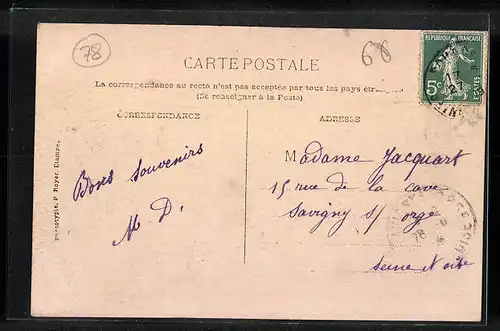 78
68
CARTE POSTALE
La correspondance au recto n'est pas acceptée par tous les pays
(Se renseigner à la Poste)
CORRESPONDANCE
ADRESSE
REPUBLIQUE FRANÇAISE
5c
POSTES
Bons souvenirs
M. D.
Madame Jacquart
15 rue de la cave
Savigny s/ orge
Seine & oise
Phototypie P. Royer, Etampes